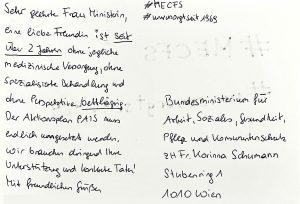 Sehr geehrte Frau Ministerin,
eine liebe Freundin ist seit
über 2 Jahren ohne jegliche
medizinische Versorgung, ohne
Spezialisierte Behandlung und
ohne Perspektive, bettlägrig.
Der Aktionsplan PAIS muss
endlich umgesetzt werden,
wir brauchen dringend Ihre
Unterstützung und konkrete Taten!
Mit freundlichen Grüßen
#MECFS
#unversorgt seit 1969
Bundesministerium für
Arbeit, Soziales, Gesundheit,
Pflege und Konsumentenschutz
zH Fr. Korinna Schumann
Stubenring 1
1010 Wien